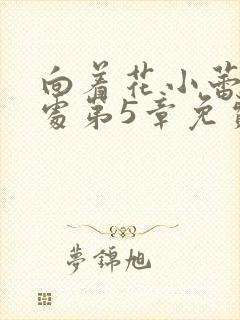 向着花小蕾
处第5章免费
梦锦旭